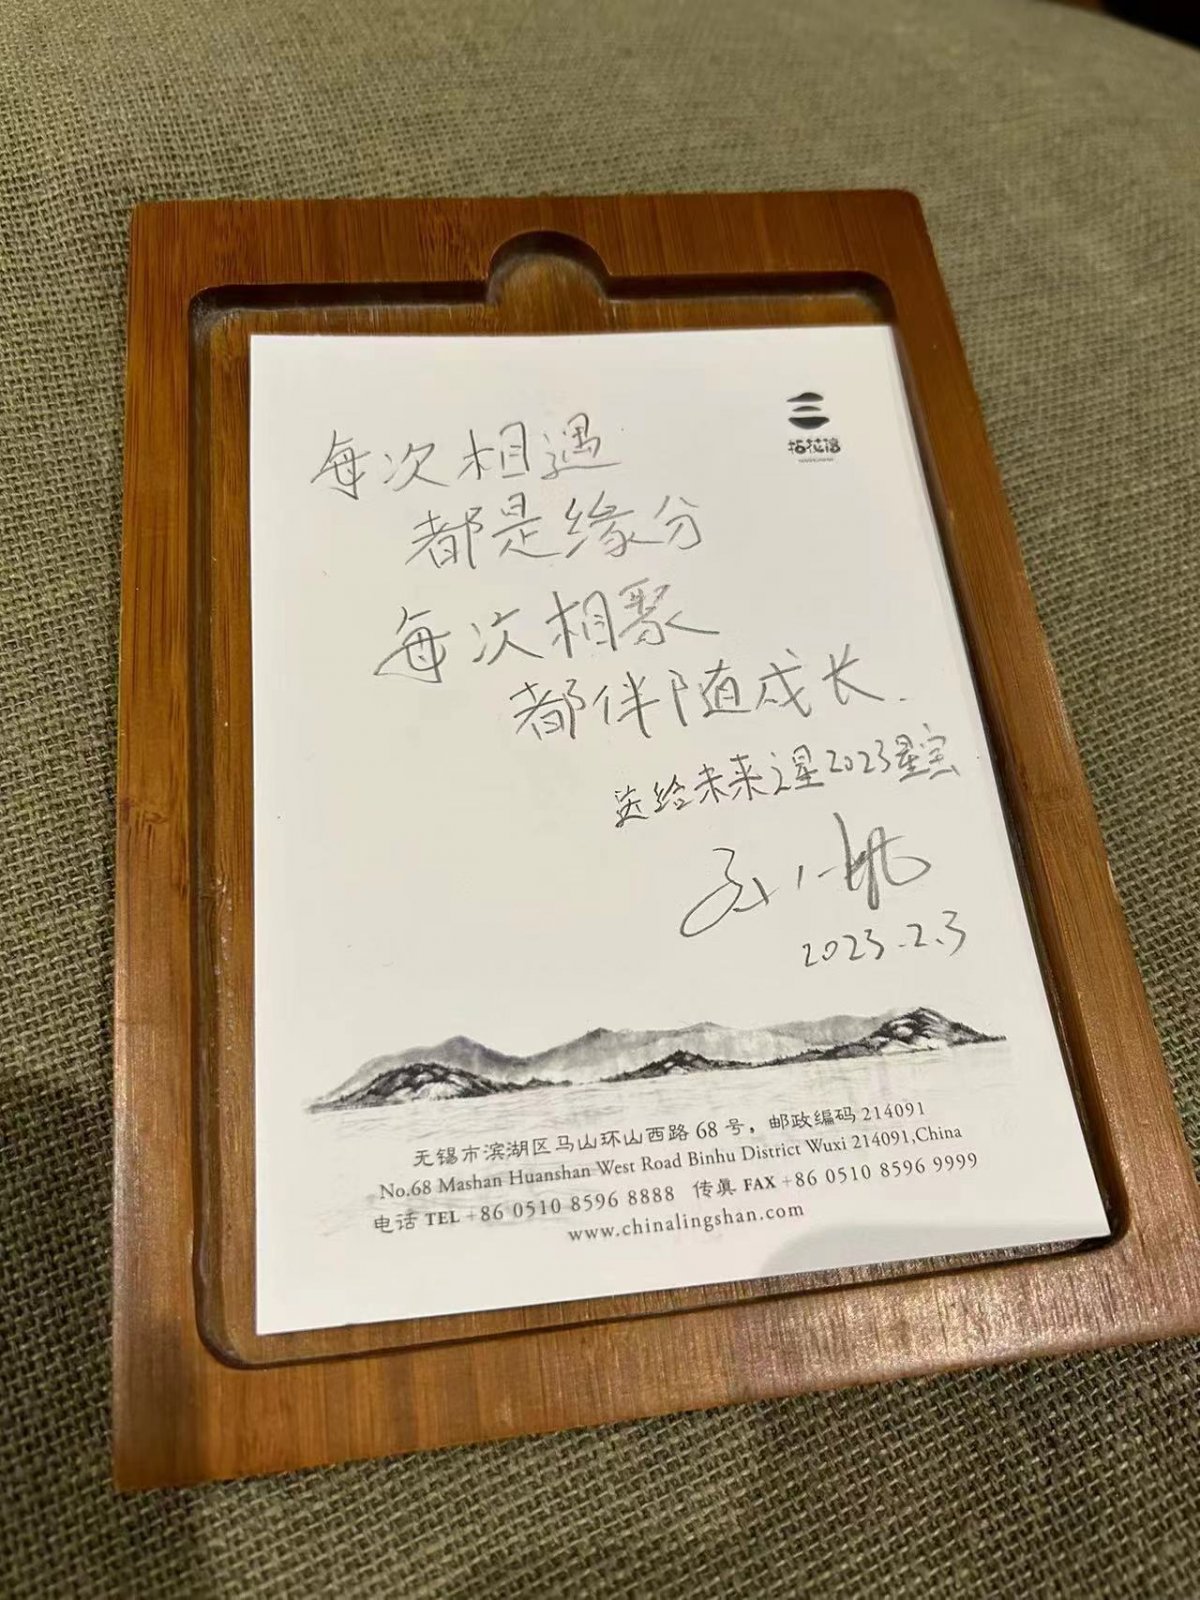 拈花湾
每次相遇
都是缘分
每次相聚
都伴随成长.
送给未来之星2023星宝
2023.2.3
无锡市滨湖区马山环山西路 68 号，邮政编码 214091
No.68 Mashan Huanshan West Road Binhu District Wuxi 214091,China
电话 TEL +86 0510 8596 8888 传真 FAX +86 0510 8596 9999
www.chinalingshan.com